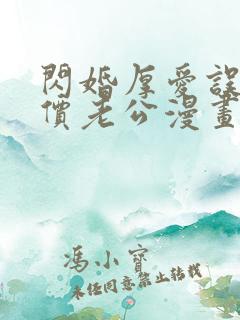 閃婚厚愛誤
價老公漫畫
馮小寶
未經同意禁止轉載